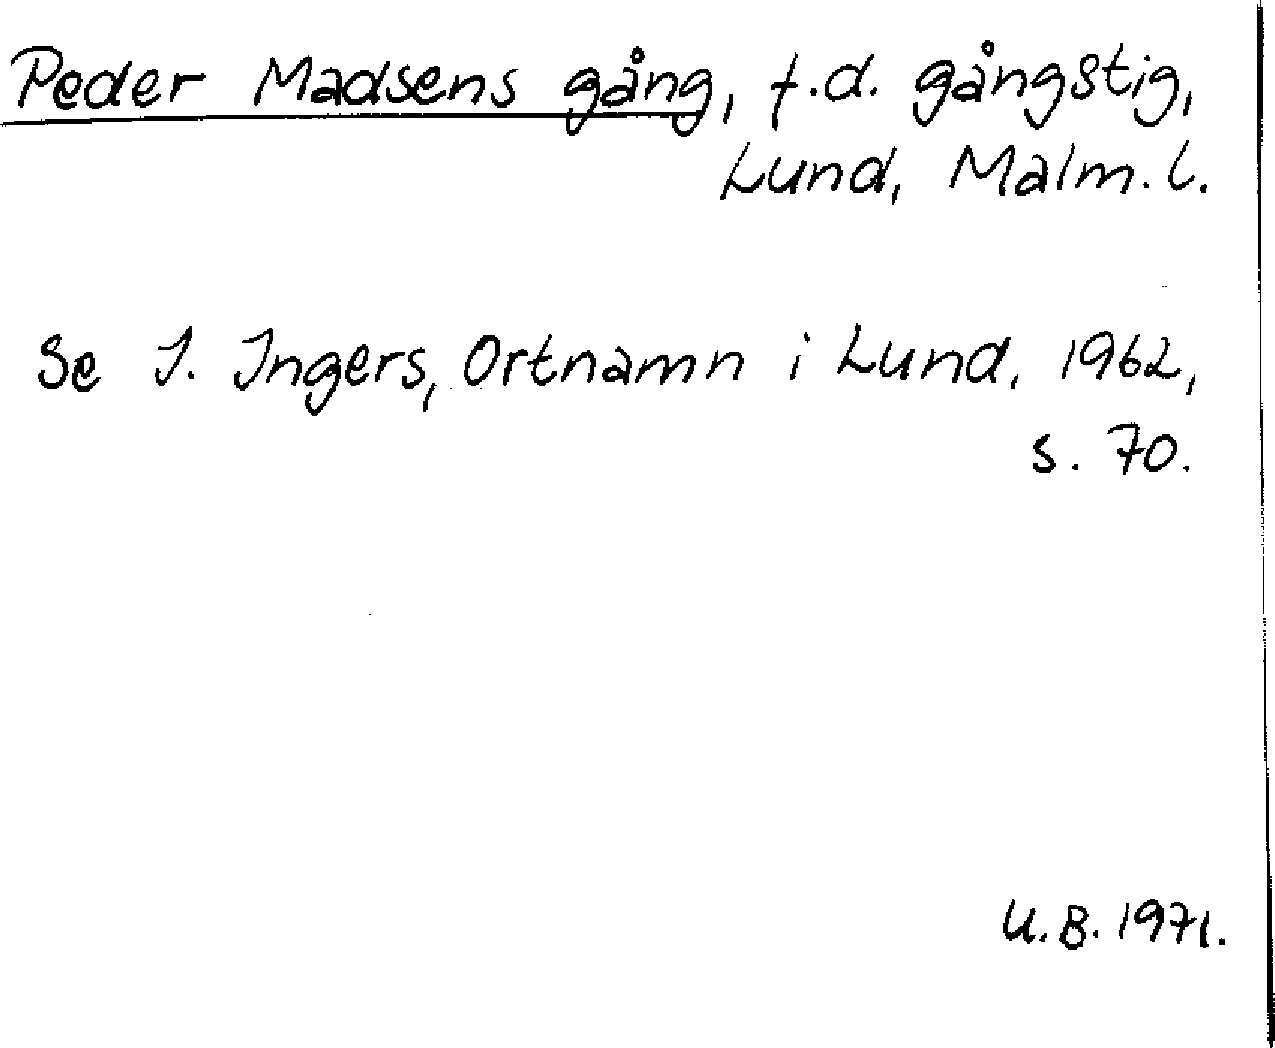 Peder Madsens gång, f.d. gångstig,
Lund, Malm. l.
Se I. Ingers, Ortnamn i Lund, 1962,
s. 70.
U. B. 1971.